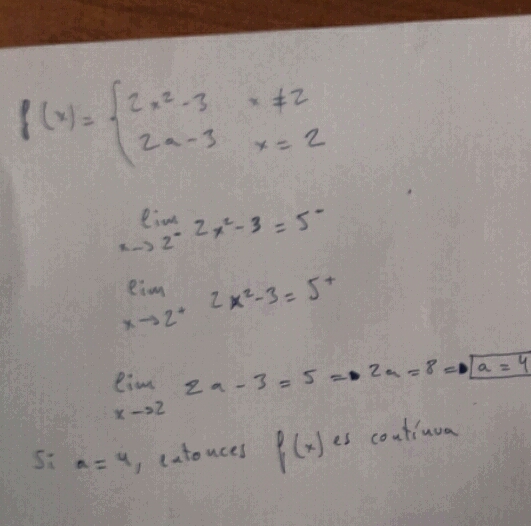 f(x) = { 2x² - 3   x ≠ 2
2a - 3   x = 2
lim x→2⁻ 2x² - 3 = 5⁻
lim x→2⁺ 2x² - 3 = 5⁺
lim x→2 2a - 3 = 5 => 2a = 8 => a = 4
Si a = 4, entonces f(x) es contínua